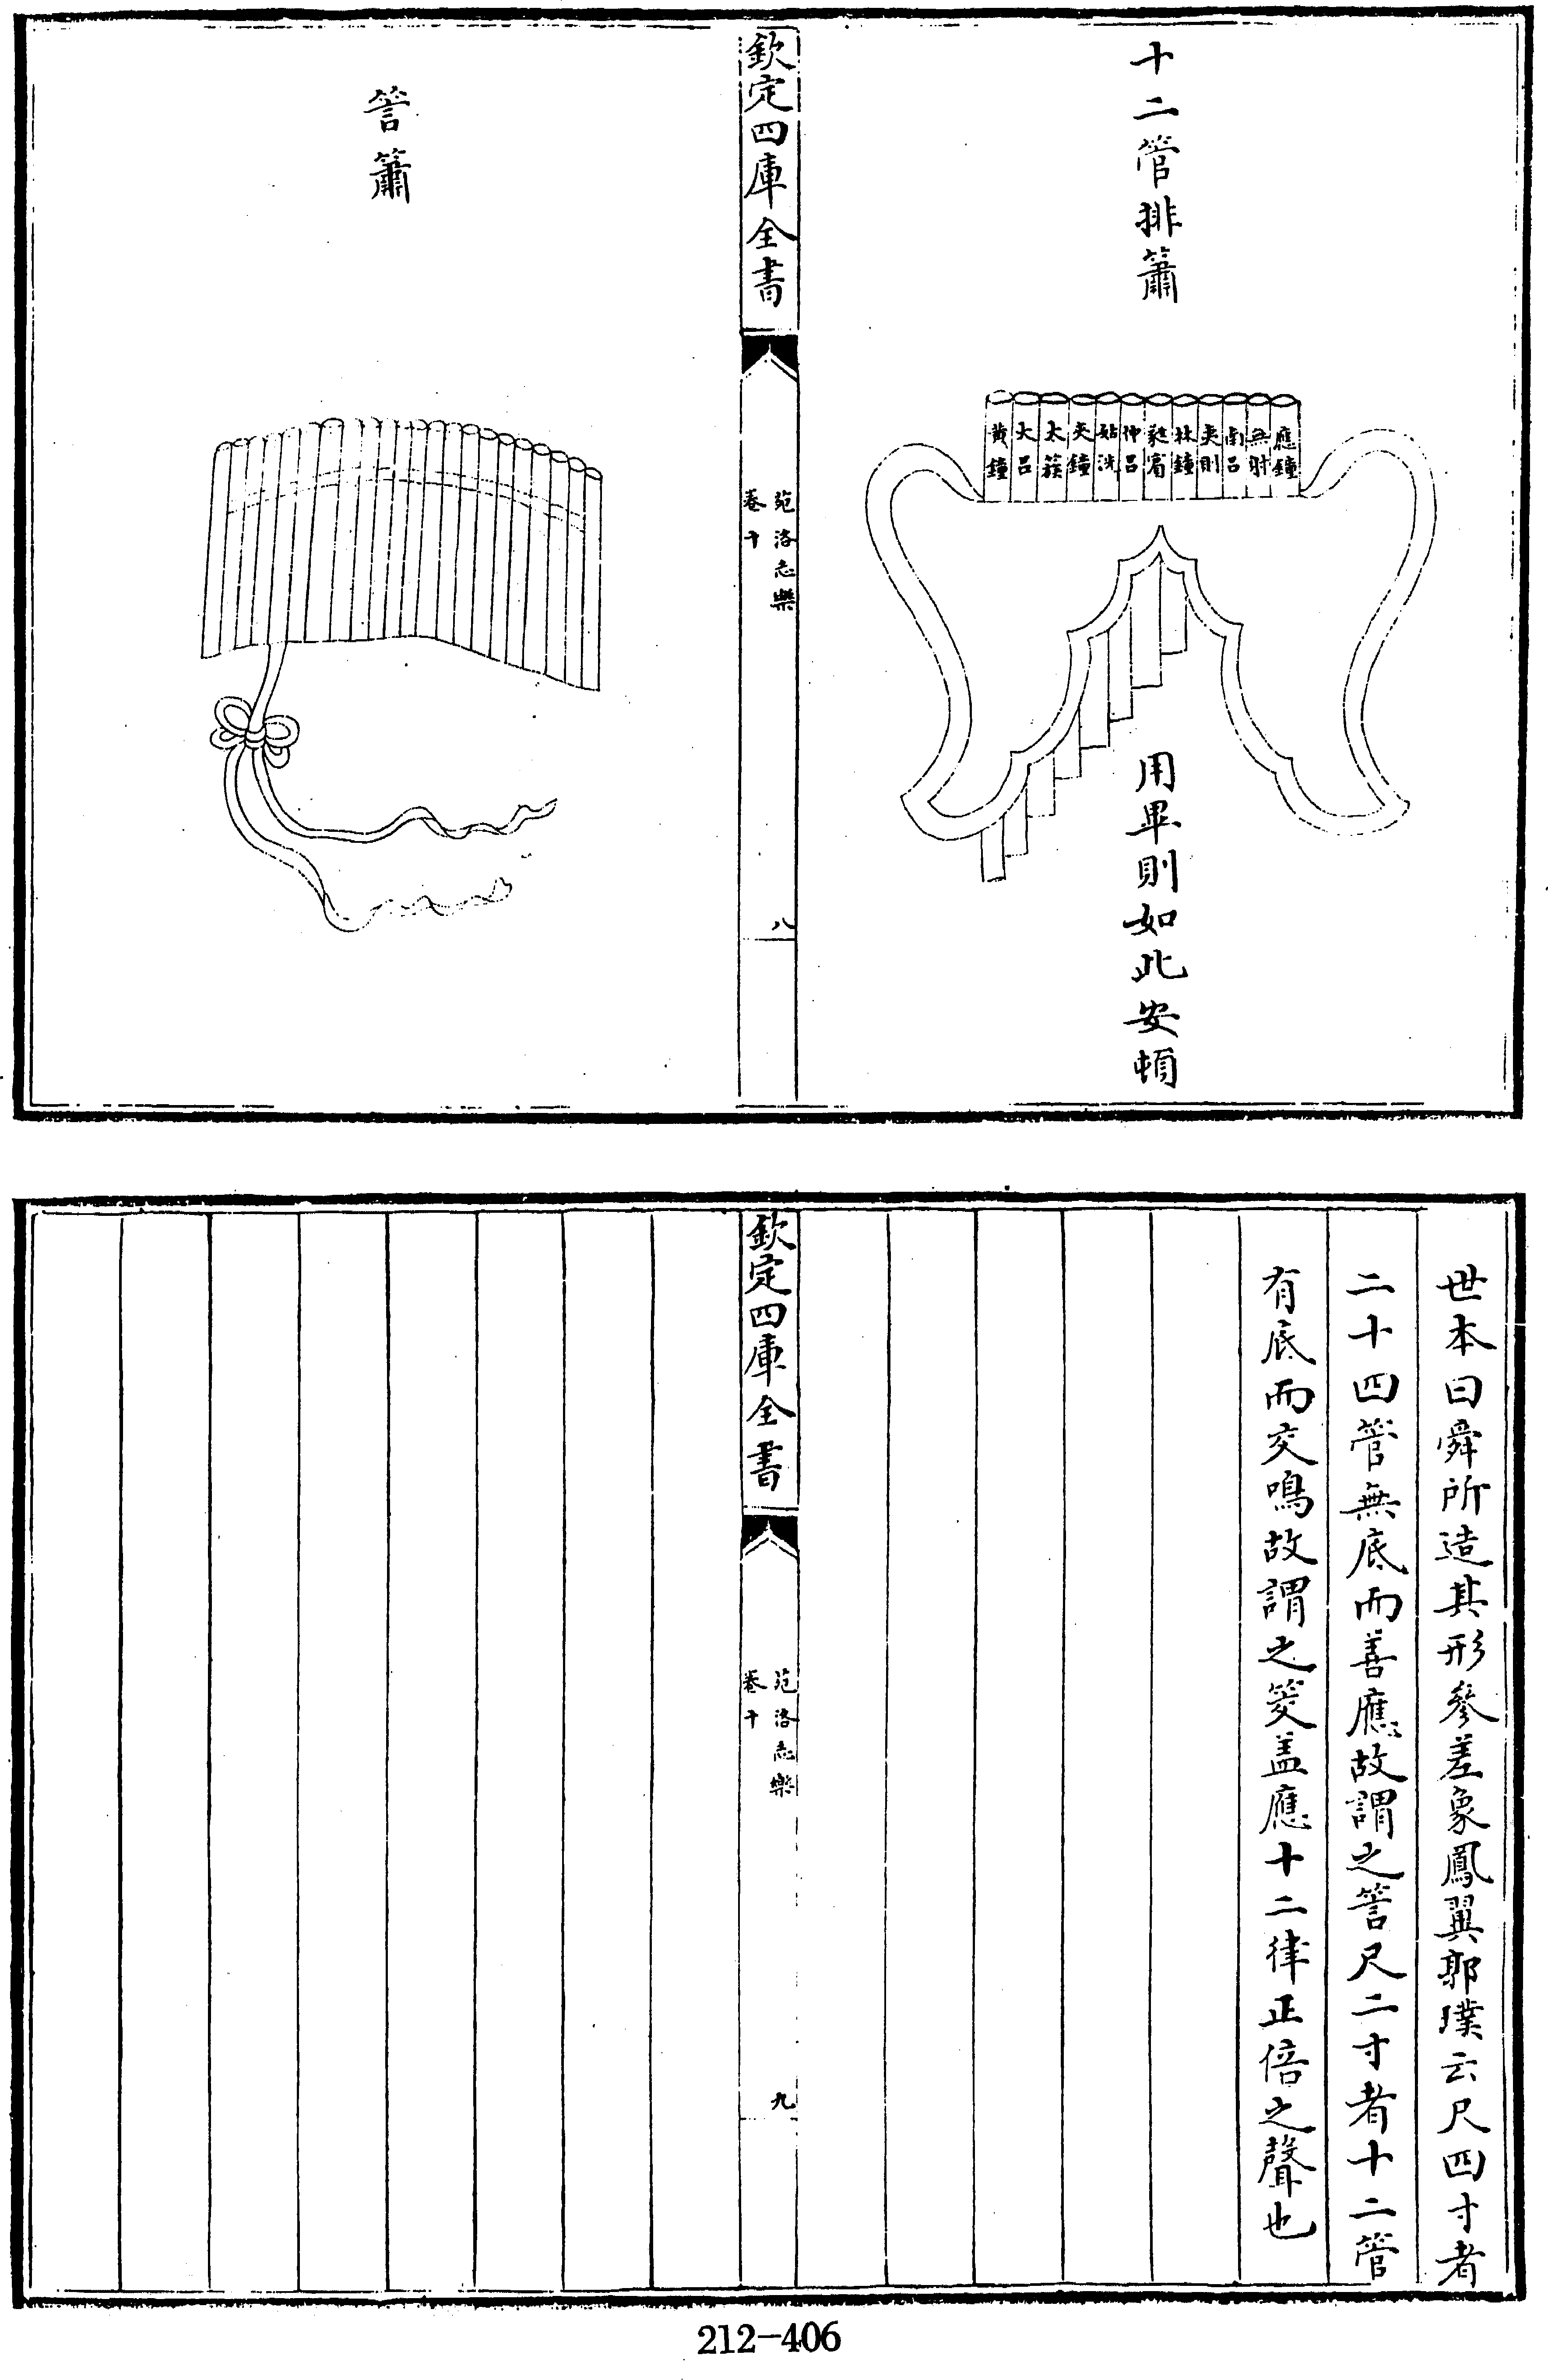 十二管排簫
黃鐘
大呂
太簇
夾鐘
姑洗
仲呂
蕤賓
林鐘
夷則
南呂
無射
應鐘
用畢則如此安頓
欽定四庫全書
苑洛志樂
卷十
八
管簫
世本曰舜所造其形參差象鳳翼郭璞云尺四寸者
二十四管無底而善應故謂之䇾尺二寸者十二管
有底而交鳴故謂之筊盖應十二律正倍之聲也
欽定四庫全書
苑洛志樂
卷十
九
212-406